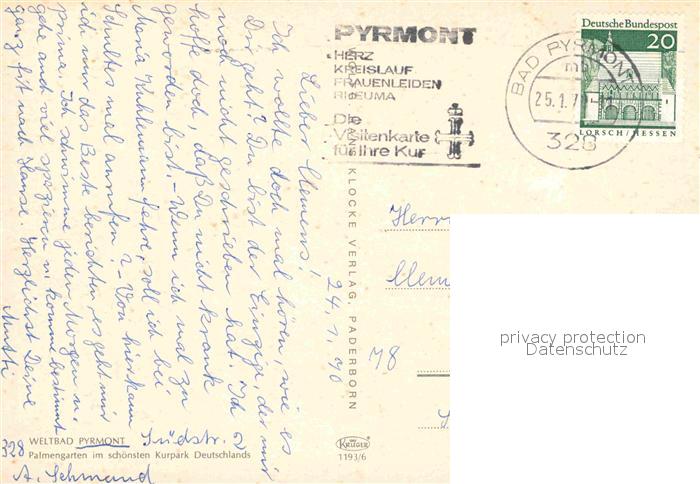 PYRMONT
HERZ
KREISLAUF
FRAUENLEIDEN
RHEUMA
Die
Visitenkarte
für Ihre Kur
Deutsche Bundespost
20
LORSCH/HESSEN
BAD PYRMONT
mb
25.1.7
328
Lieber Clemens!
Ich wollte doch mal hören, wie es
Dir geht? Du bist der Einzige, der mir
noch nicht geschrieben hat. Ich
hoffe doch, daß Du nicht krank
geworden bist. - Wenn ich mal zu
Maria fahre, soll ich bei
Schultes mal anrufen? - Von hier kann
ich das Beste berichten es geht mir
prima. Ich schwimme jeden Morgen u.
gehe auch viel spazieren u. komme bestimmt
ganz fit nach Hause. Herzlichst Deine
Mutti
24.1.70
KLOCKE VERLAG, PADERBORN
Herrn
Clem
M8
privacy protection
Datenschutz
WELTBAD PYRMONT
Palmengarten im schönsten Kurpark Deutschlands
Südstr. 2
328
A. Schmand
KRÜGER
1193/6